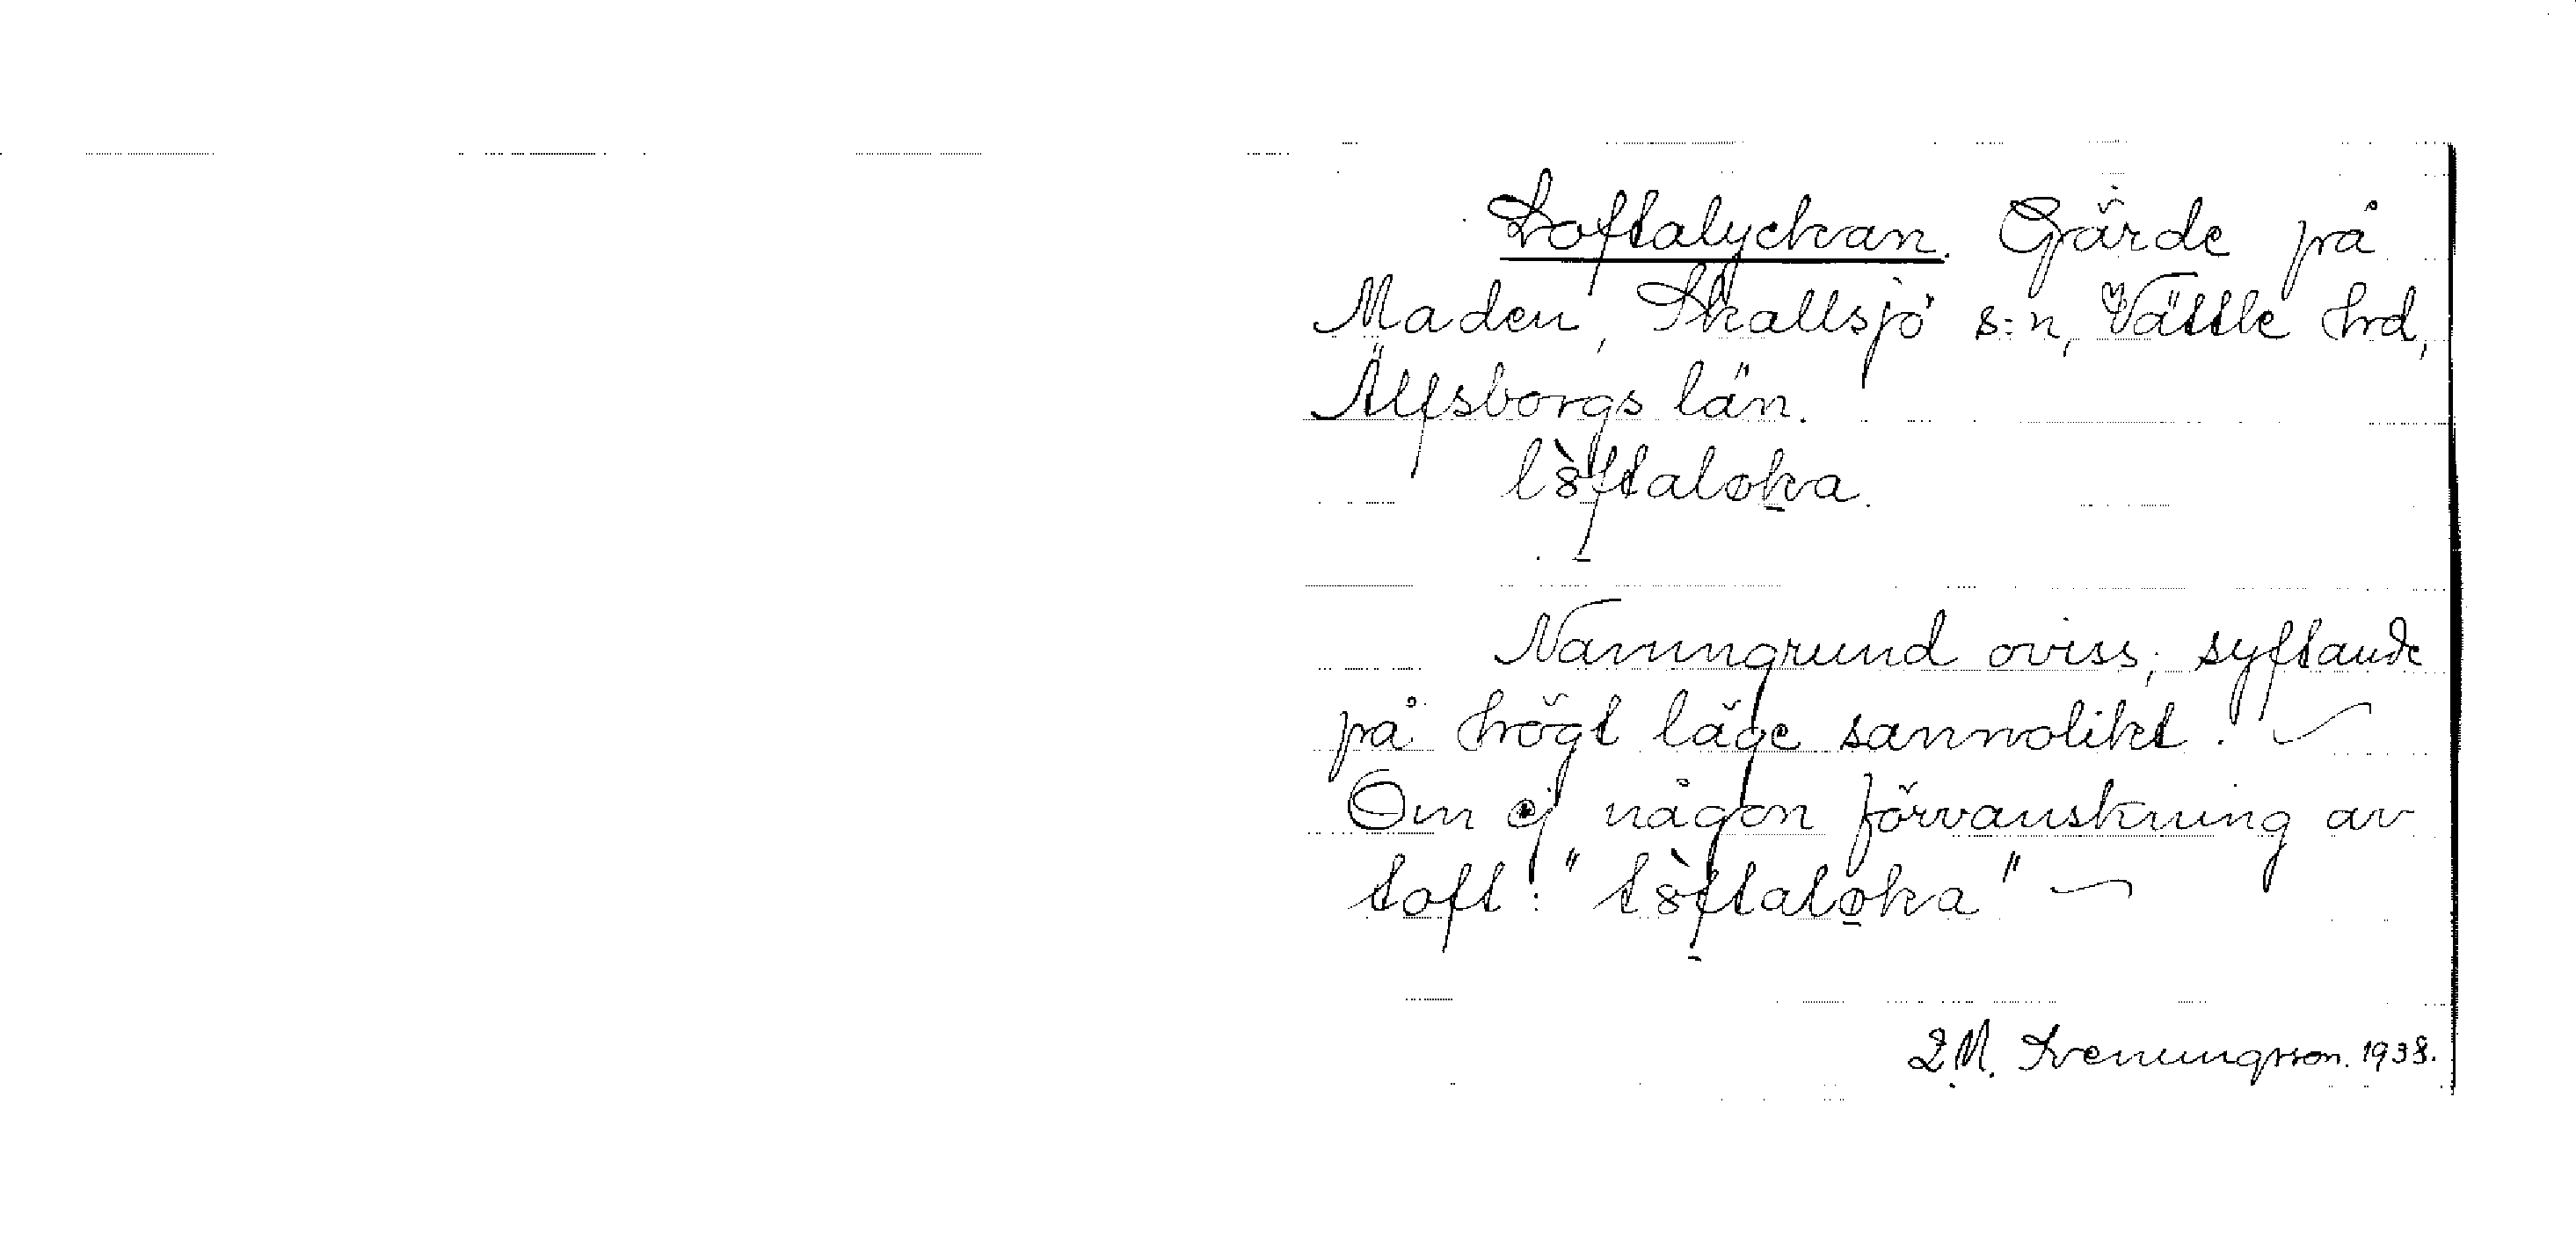 Loftalyckan. Gärde på
Maden, Skallsjö s:n, Vättle hrd,
Älfsborgs län.
l8̀ftaløka.
Namngrund oviss, syftande
på högt läge sannolikt.
Om ej någon förvanskning av
toft: "t8̀ftaløka"
Svenungsson. 1938.